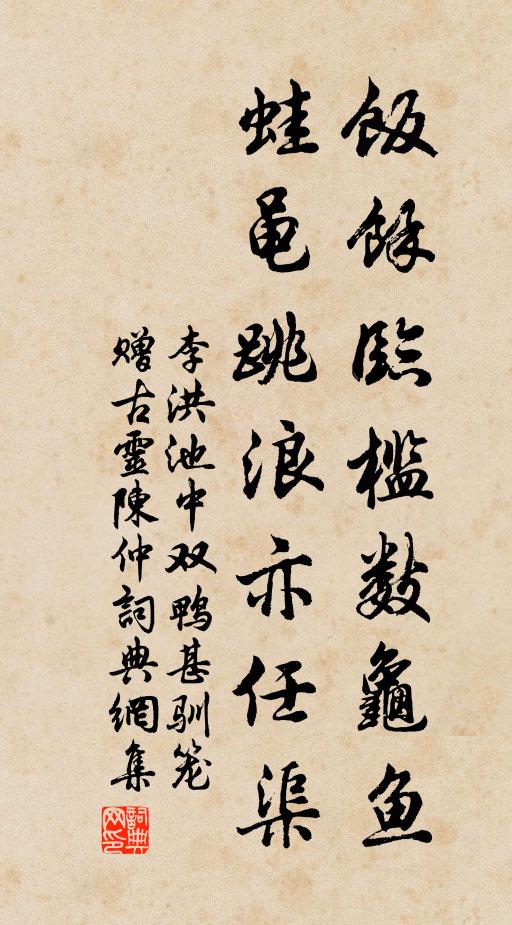 飯餘臨檻數龜魚
蛙黽跳浪亦任渠
李洪池中双鸭甚馴笼
贈古靈陳仲詞典網集
詞典网印